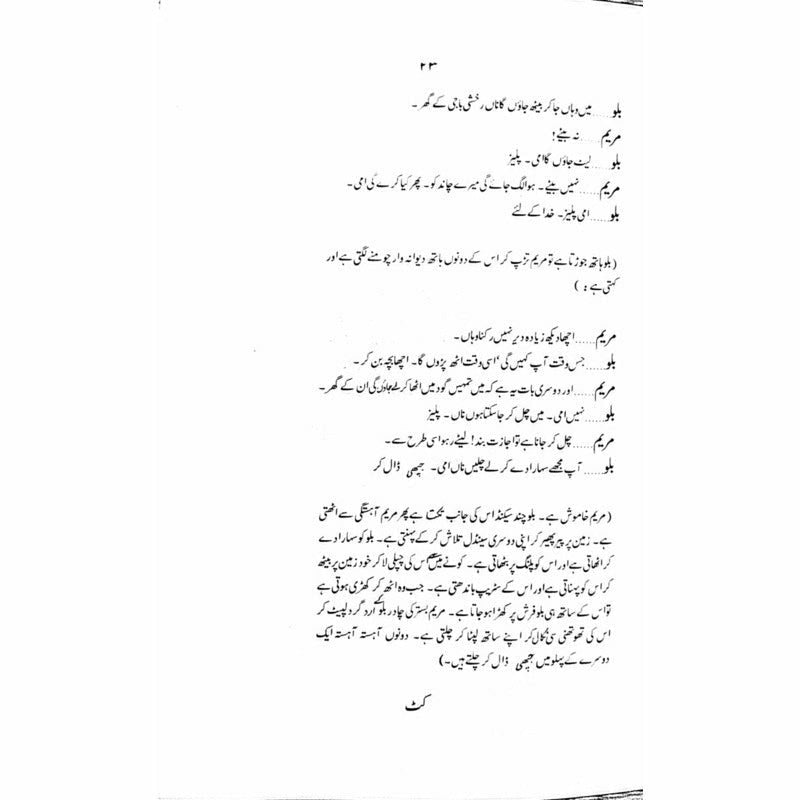 ۲۳
بلو......میں وہاں جا کر بیٹھ جاؤں گا ناں رخشی باجی کے گھر۔
مریم......نہ بیٹے!
بلو......لیٹ جاؤں گا امی۔ پلیز
مریم......نہیں بیٹے۔ ہوا لگ جائے گی میرے چاند کو۔ پھر کیا کرے گی امی۔
بلو......امی پلیز۔ خدا کے لئے
(بلو ہاتھ جوڑتا ہے تو مریم تڑپ کر اس کے دونوں ہاتھ دیوانہ وار چومنے لگتی ہے اور
کہتی ہے:)
مریم......اچھا دیکھ زیادہ دیر نہیں رکنا وہاں۔
بلو......جس وقت آپ کہیں گی، اسی وقت اٹھ پڑوں گا۔ اچھا بچہ بن کر۔
مریم......اور دوسری بات یہ ہے کہ میں تمہیں گود میں اٹھا کر لے جاؤں گی ان کے گھر۔
بلو......نہیں امی۔ میں چل کر جا سکتا ہوں ناں۔ پلیز
مریم......چل کر جانا ہے تو اجازت بند! لیٹے رہو اسی طرح سے۔
بلو......آپ مجھے سہارا دے کر لے چلیں ناں امی۔ جپھی ڈال کر
(مریم خاموش ہے۔ بلو چند سیکنڈ اس کی جانب تکتا ہے پھر مریم آہستگی سے اٹھتی
ہے۔ زمین پر پیر پھیر کر اپنی دوسری سینڈل تلاش کر کے پہنتی ہے۔ بلو کو سہارا دے
کر اٹھاتی ہے اور اس کو پلنگ پر بٹھاتی ہے۔ کونے میں سے اس کی چپلی لا کر خود زمین پر بیٹھ
کر اس کو پہناتی ہے اور اس کے سٹریپ باندھتی ہے۔ جب وہ اٹھ کر کھڑی ہوتی ہے
تو اس کے ساتھ ہی بلو فرش پر کھڑا ہو جاتا ہے۔ مریم بستر کی چادر بلو کے اردگرد لپیٹ کر
اس کی تھوتھنی سی نکال کر اپنے ساتھ لپٹا کر چلتی ہے۔ دونوں آہستہ آہستہ ایک
دوسرے کے پہلو میں جپھی ڈال کر چلتے ہیں۔)
کٹ